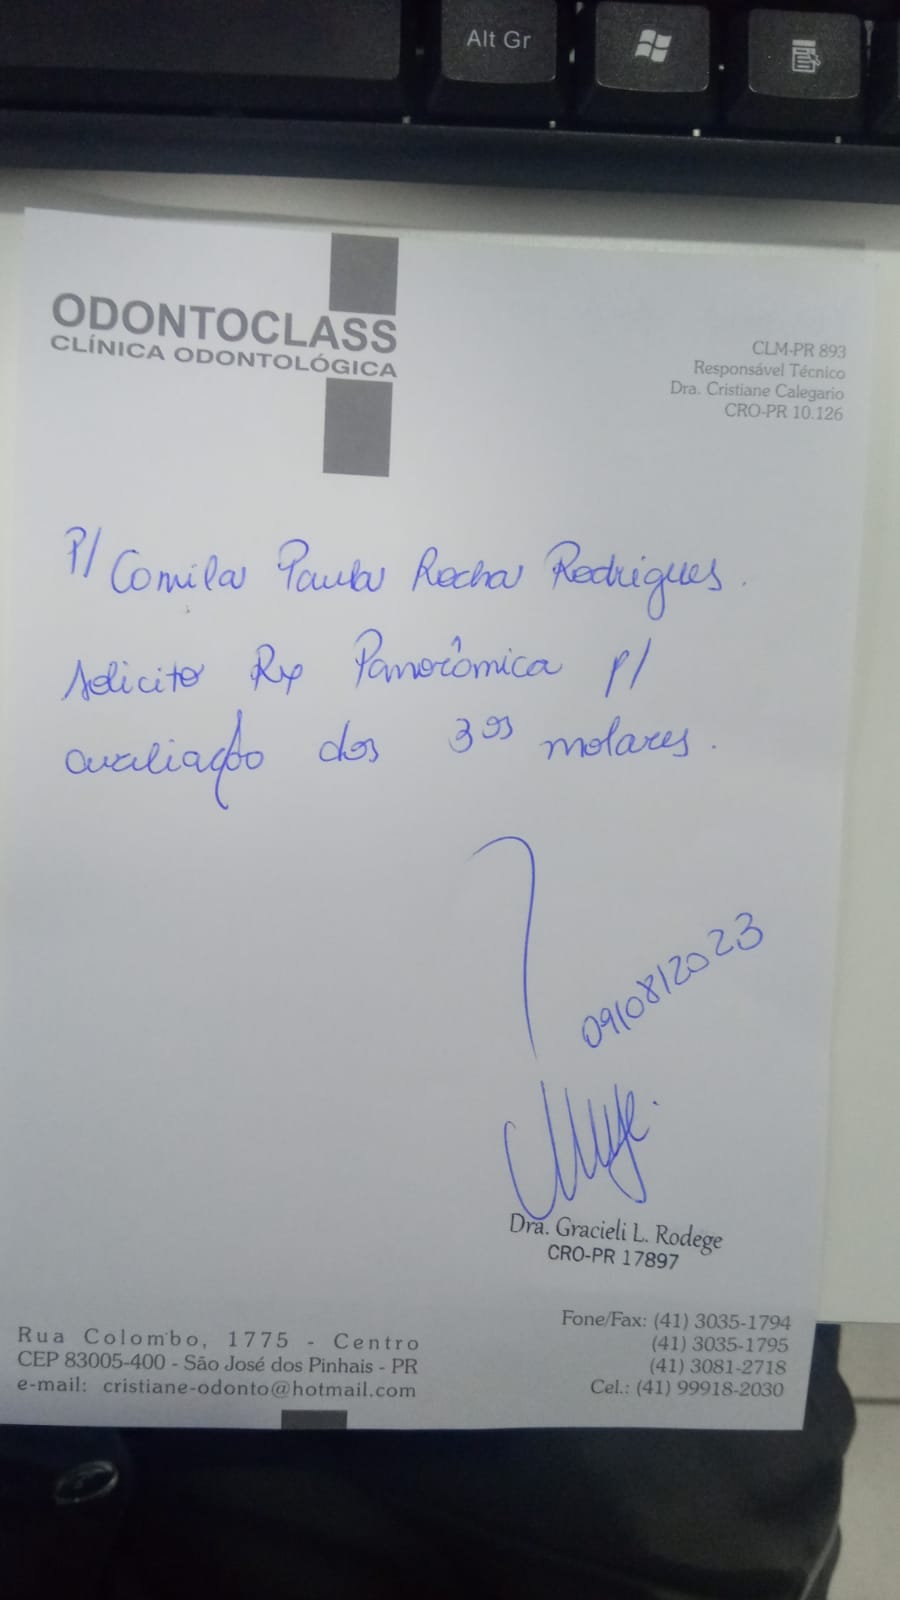 Alt Gr
ODONTOCLASS
CLÍNICA ODONTOLÓGICA
CLM-PR 893
Responsável Técnico
Dra. Cristiane Calegario
CRO-PR 10.126
P/ Camila Paula Rocha Rodrigues.
Solicito Rx Panorâmica p/
avaliação dos 3ºs molares.
09/08/2023
Dra. Gracieli L. Rodege
CRO-PR 17897
Rua Colombo, 1775 - Centro
CEP 83005-400 - São José dos Pinhais - PR
e-mail: cristiane-odonto@hotmail.com
Fone/Fax: (41) 3035-1794
(41) 3035-1795
(41) 3081-2718
Cel.: (41) 99918-2030